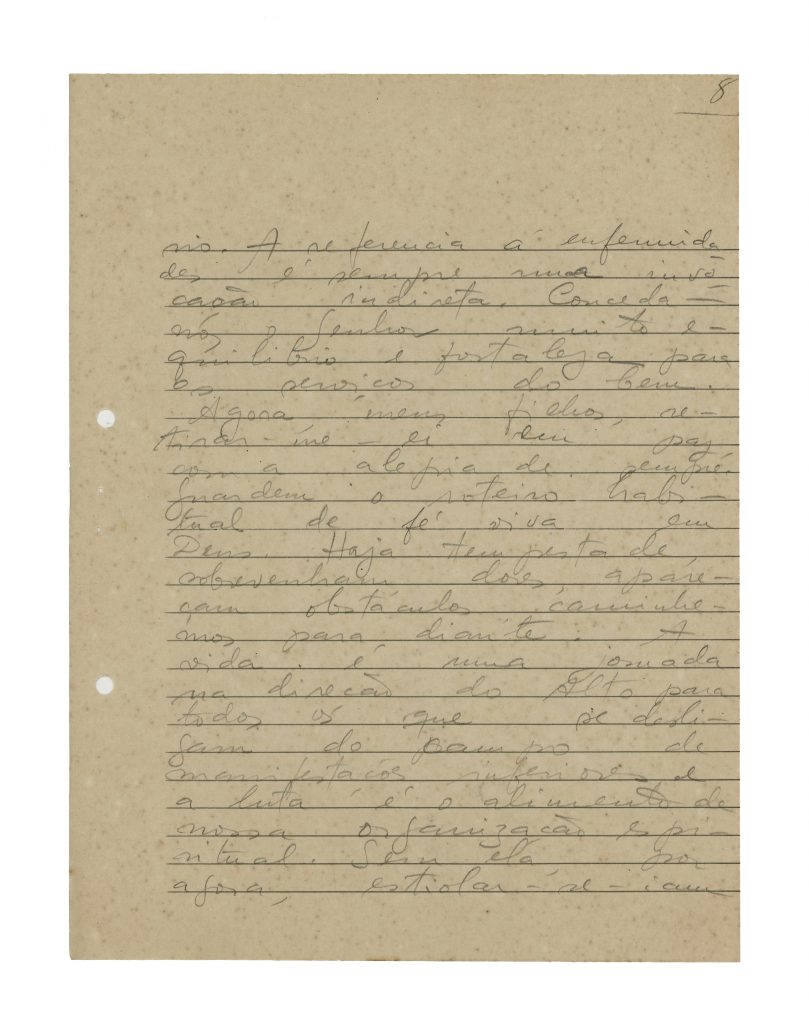 8
rio. A referencia á enfermida
des é sempre uma invo
cação indireta. Conceda-
nos o Senhor muito e-
quilibrio e fortaleza para
os serviços do bem.
Agora meus filhos, re-
tirar-me-ei em paz
com a alegria de sempre.
Guardem o roteiro habi-
tual de fé viva em
Deus. Haja tempestade,
sobrevenham dores, apare-
çam obstáculos caminhe-
mos para diante. A
vida é uma jornada
na direcão do Alto para
todos os que se desli-
gam do campo de
manifestacões inferiores e
a luta é o alimento de
nossa organização espi-
ritual. Sem ela, por
agora, estiolar-se-iam